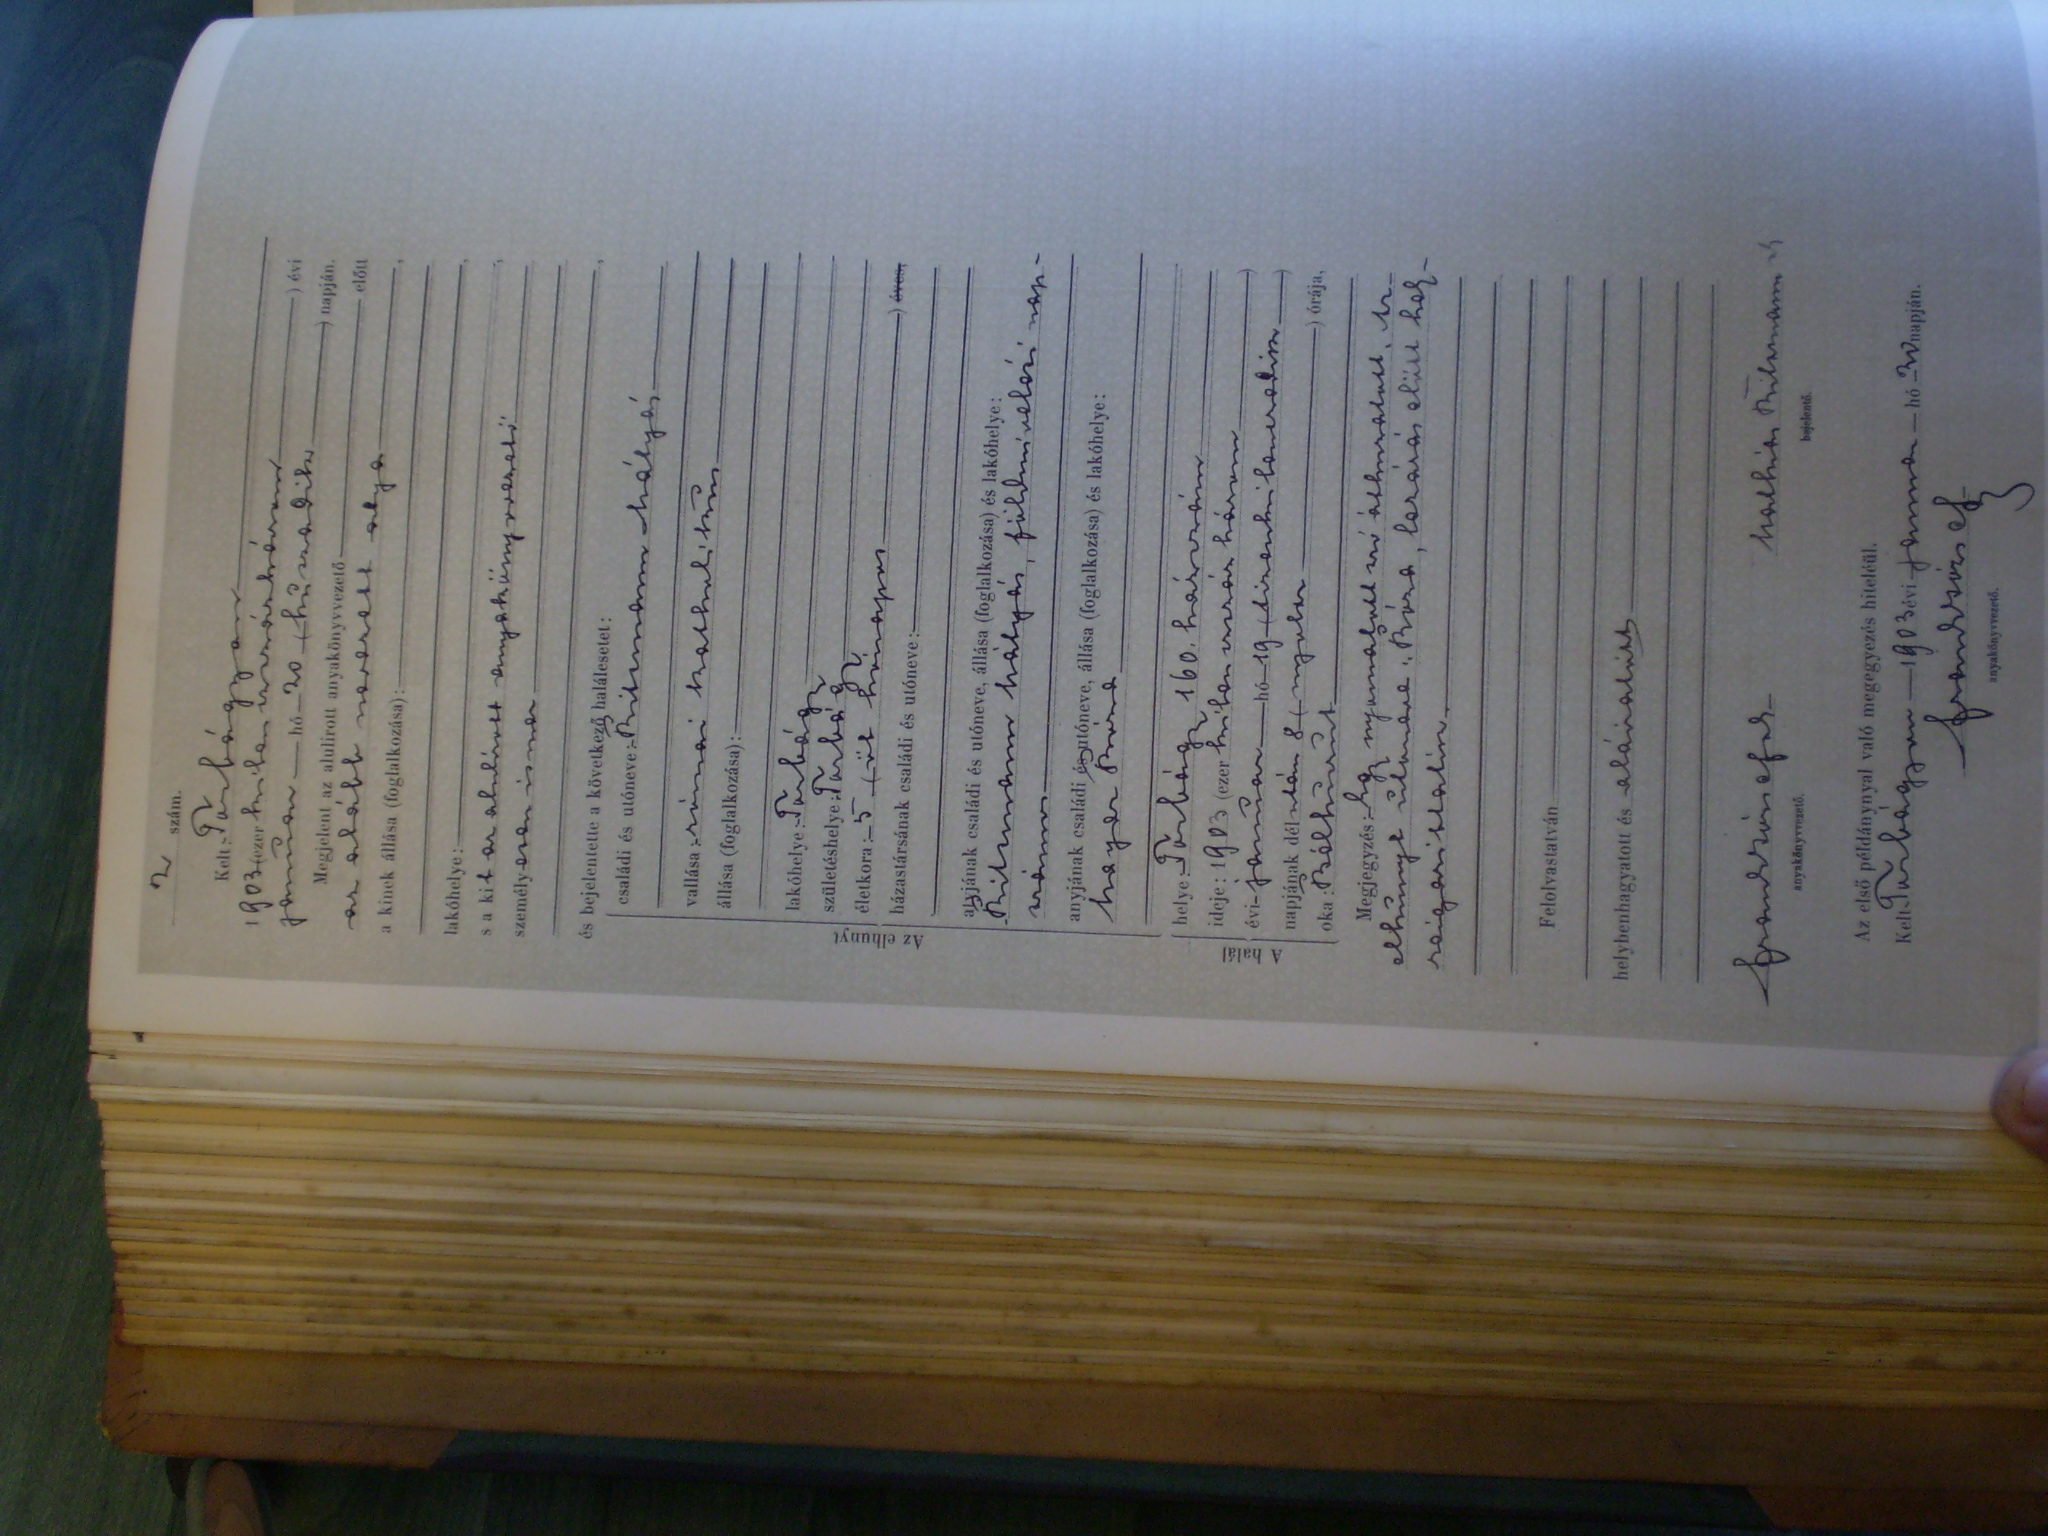 2 szám.
Kelt: Törbágyon
1903 (ezerkilenczszázhárom) évi
január hó 20 (huszadik) napján.
Megjelent az alulirott anyakönyvvezető előtt
az alább nevezett atya
a kinek állása (foglalkozása):
lakóhelye:
s a kit az alulirott anyakönyvvezető
személyesen ismer
és bejelentette a következő halálesetet:
Az elhunyt
családi és utóneve: Ritzmann Mátyás
vallása: római katholikus
állása (foglalkozása):
lakóhelye: Törbágy
születéshelye: Törbágy
életkora: 5 (öt hónapos) éves,
házastársának családi és utóneve:
atyjának családi és utóneve, állása (foglalkozása) és lakóhelye:
Ritzmann Mátyás, földmívelési nap-
számos
anyjának családi és utóneve, állása (foglalkozása) és lakóhelye:
Mayer Róza
A halál
helye: Törbágy, 160. házszám
ideje: 1903 (ezerkilenczszázhárom)
évi január hó 19 (tizenkilenczedik)
napjának délután 8 (nyolcz) órája,
oka: Bélhurut
Megjegyzés: Egy szó
elhunyt Róza
Felolvastatván
helybenhagyatott és aláiratott
anyakönyvvezető. Mathias Ritzmann
bejelentő.
Az első példánynyal való megegyezés hiteléül.
Kelt: Törbágyon 1903 évi január hó 20 napján.
anyakönyvvezető.